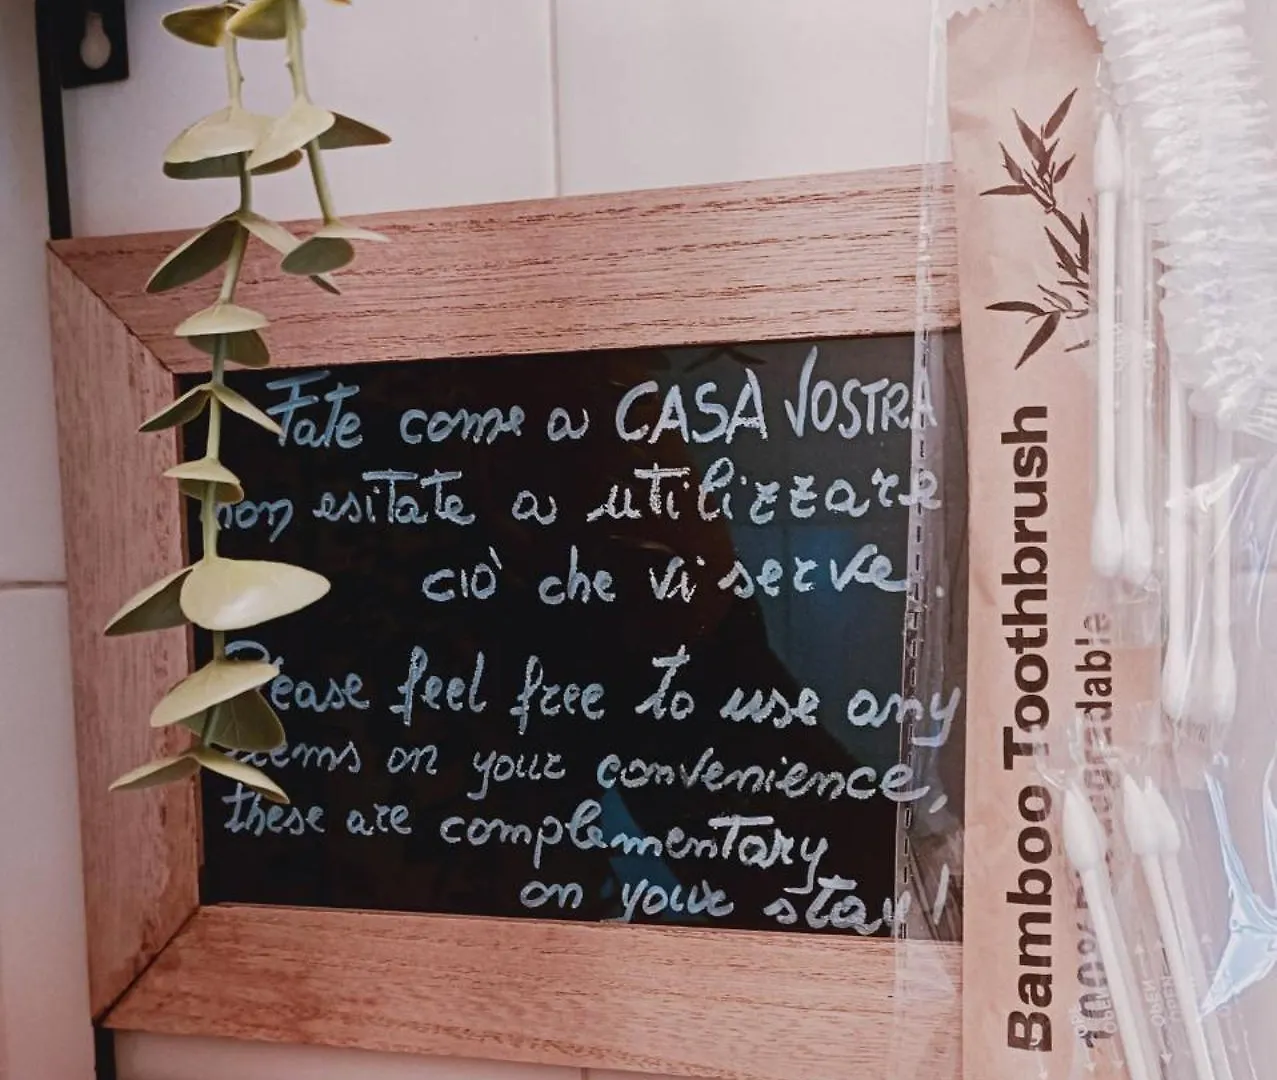 Fate come a CASA VOSTRA
non esitate a utilizzare
ciò che vi serve
Please feel free to use any
items on your convenience,
these are complementary
on your stay!
Bamboo Toothbrush
100%
OPEN
OPEN